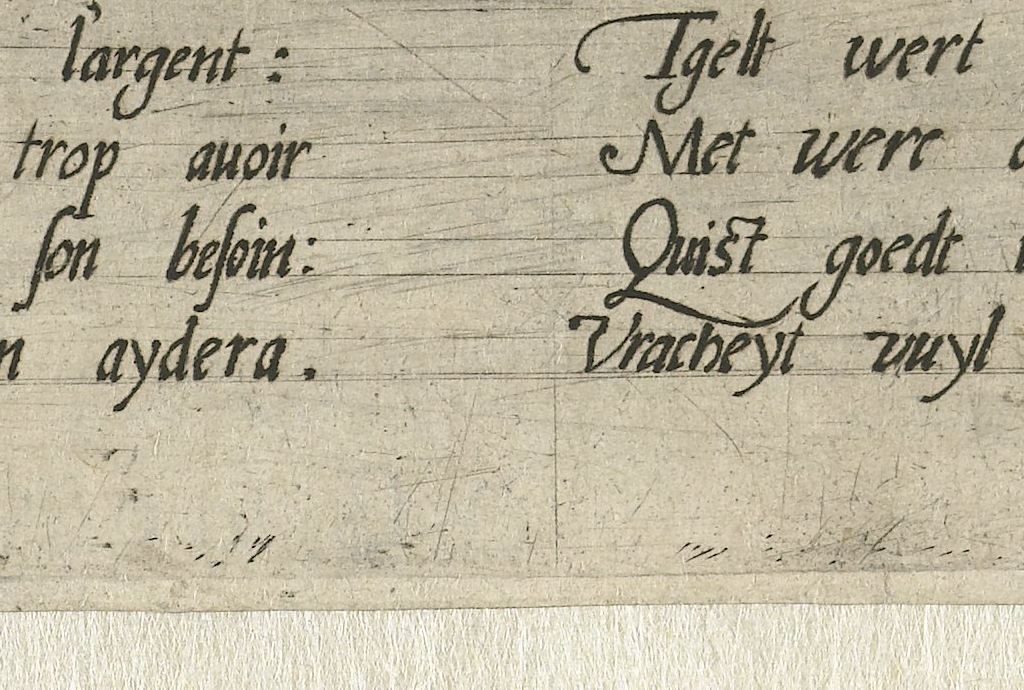 l'argent :
trop auoir
ſon beſoin:
aydera .
Tgelt wert
Met were
Quist goedt
Vracheyt vuyl